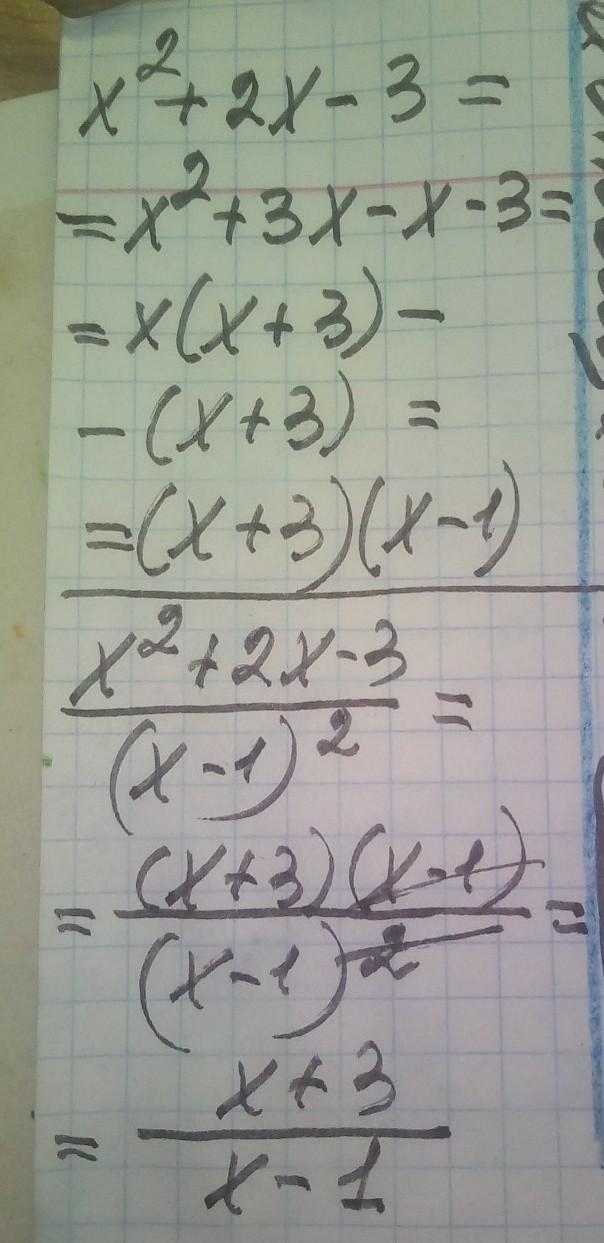 x² + 2x - 3 =
= x² + 3x - x - 3 =
= x(x + 3) -
- (x + 3) =
= (x + 3)(x - 1)
x² + 2x - 3
/ (x - 1)² =
= (x + 3)(x - 1)
/ (x - 1)² =
= x + 3
/ x - 1